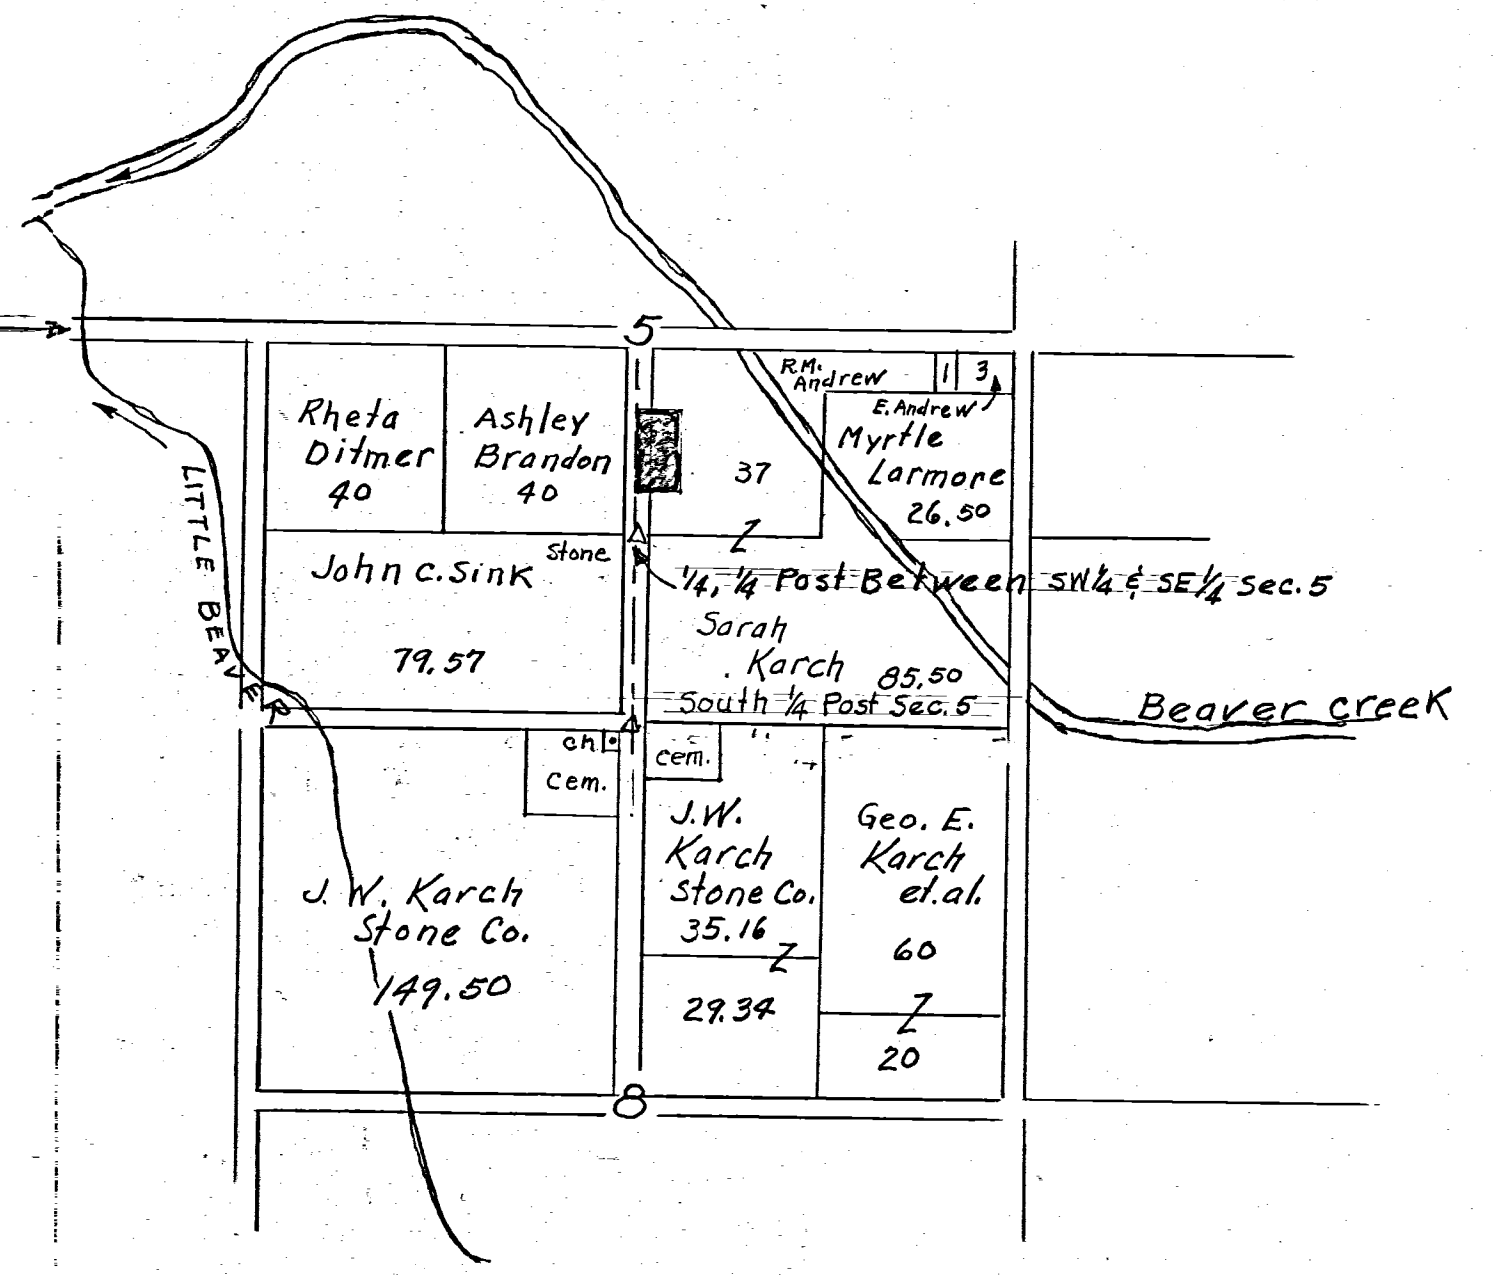 5
R.M.
Andrew
1
3
E. Andrew
Rheta
Ditmer
40
Ashley
Brandon
40
37
Myrtle
Larmore
26.50
Z
Stone
John C. Sink
79.57
1/4, 1/4 Post Between SW 1/4 & SE 1/4 Sec. 5
Sarah
Karch
85.50
South 1/4 Post Sec. 5
LITTLE BEAVER
Beaver Creek
ch
Cem.
Cem.
J. W. Karch
Stone Co.
149.50
J.W.
Karch
Stone Co.
35.16
Z
29.34
Geo. E.
Karch
et.al.
60
Z
20
8